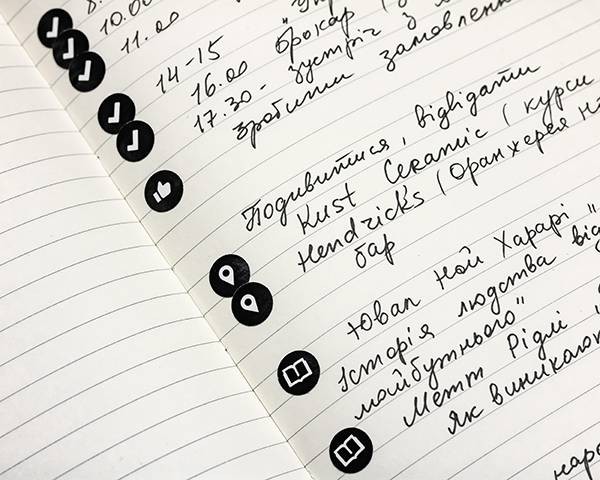 10.00
11.00
14-15
16.00 Брокар (
17.30 - зустріч з
Зробити замовлення
Подивитися, відвідати
Kust Ceramic ( курси
Hendricks ( Оранжерея
бар
Ювал Ной Харарі "
Історія людства від
майбутнього"
Метт Рідлі "
як виникають